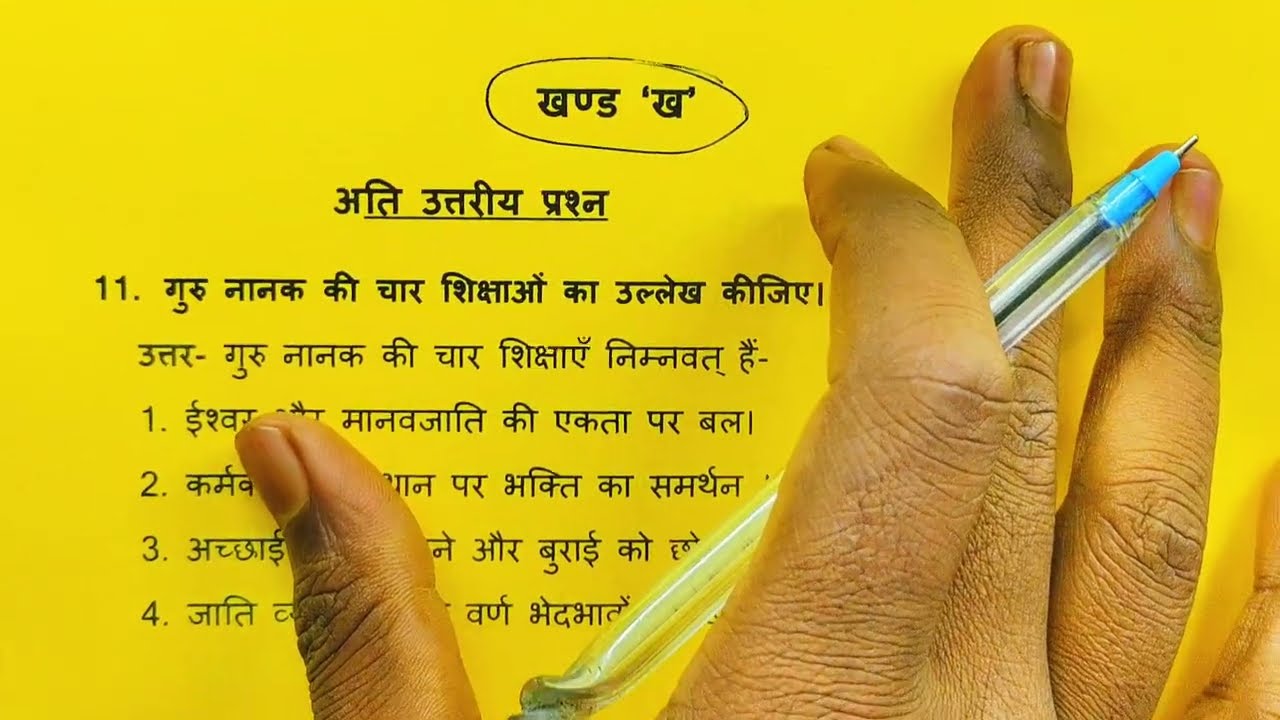 खण्ड ‘ख’
अति उत्तरीय प्रश्न
11. गुरु नानक की चार शिक्षाओं का उल्लेख कीजिए।
उत्तर- गुरु नानक की चार शिक्षाएँ निम्नवत् हैं-
1. ईश्वर और मानवजाति की एकता पर बल।
2. पर भक्ति का समर्थन
3. और बुराई को
4. जाति वर्ण